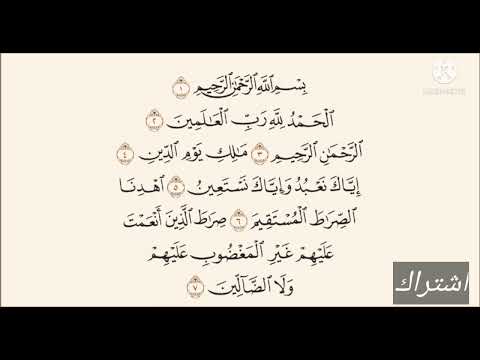 بِسْمِ ٱللَّهِ ٱلرَّحْمَٰنِ ٱلرَّحِيمِ ١
ٱلْحَمْدُ لِلَّهِ رَبِّ ٱلْعَٰلَمِينَ ٢
ٱلرَّحْمَٰنِ ٱلرَّحِيمِ ٣ مَٰلِكِ يَوْمِ ٱلدِّينِ ٤
إِيَّاكَ نَعْبُدُ وَإِيَّاكَ نَسْتَعِينُ ٥ ٱهْدِنَا
ٱلصِّرَٰطَ ٱلْمُسْتَقِيمَ ٦ صِرَٰطَ ٱلَّذِينَ أَنْعَمْتَ
عَلَيْهِمْ غَيْرِ ٱلْمَغْضُوبِ عَلَيْهِمْ
وَلَا ٱلضَّآلِّينَ ٧
اشتراك